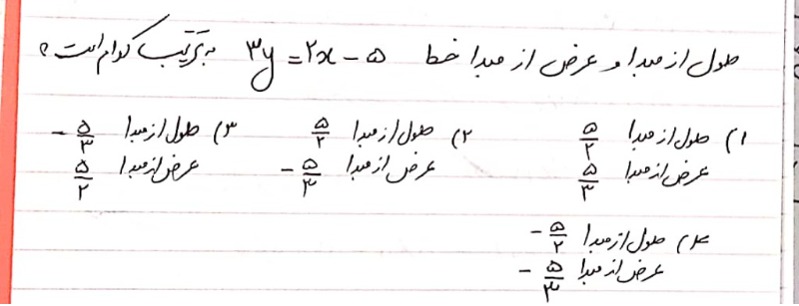 طول از مبدا و عرض از مبدا خط ۳y = ۲x - ۵ به ترتیب کدام است؟
۱) طول از مبدا ۵/۲ ۲) طول از مبدا ۵/۲ ۳) طول از مبدا -۵/۳
عرض از مبدا ۵/۳ عرض از مبدا -۵/۳ عرض از مبدا ۵/۲
۴) طول از مبدا -۵/۲
عرض از مبدا -۵/۳